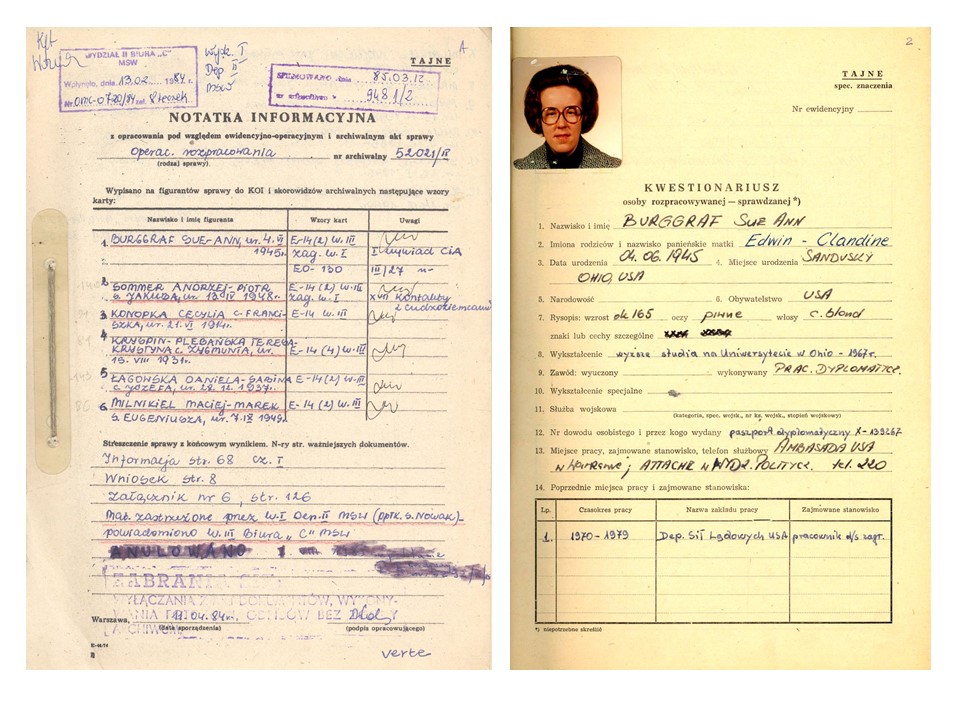 1
TAJNE
WYDZIAŁ II BIURA „C”
MSW
Wpłynęło, dnia 13.02 1984 r.
Dep II
MSW
dnia 85.03.12
9481/2
NOTATKA INFORMACYJNA
z opracowania pod względem ewidencyjno-operacyjnym i archiwalnym akt sprawy
Operac. rozpracowania nr archiwalny 52021/II
(rodzaj sprawy)
Wypisano na figurantów sprawy do KOI i skorowidzów archiwalnych następujące wzory
karty:
Nazwisko i imię figuranta Wzory kart Uwagi
1. BURGGRAF SUE-ANN, ur. 4.VI E-14(2) w.III
1945r. zag. w.I CIA
EO-130 III/27
2. SOMMER ANDRZEJ-PIOTR E-14(2) w.III
s. JAKUBA, ur. 13.IV 1948r. zag. w.I XVII Kontakty
z cudzoziemcami
3. KONOPKA CECYLIA C. FRANCI- E-14 w.III
SZKA, ur. 21.VI 1914r.
4. KRYSPIN-PLEBAŃSKA TERESA-
KRYSTYNA c. ZYGMUNTA, ur. E-14(4) w.III
15.VIII 1931r.
5. ŁAGOWSKA DANIELA-SABINA E-14(2) w.III
c. JÓZEFA, ur. 28.12.1937r.
6. MILNIKIEL MACIEJ-MAREK E-14(2) w.III
s. EUGENIUSZA, ur. 7.IX 1949r.
Streszczenie sprawy z końcowym wynikiem. N-ry str. ważniejszych dokumentów.
Informacja str. 68 cz. I
Wniosek str. 8
Załącznik nr 6, str. 126
Mat. zastrzeżone przez w.I Dep.II MSW (ppłk. S. Nowak)-
powiadomiono w.III Biura „C” MSW
ANULOWANO
ZABRANIA SIĘ
WYŁĄCZANIA
BEZ
Warszawa, 17.04.84r.
(data sporządzenia) (podpis opracowującego)
verte
2
TAJNE
spec. znaczenia
Nr ewidencyjny
KWESTIONARIUSZ
osoby rozpracowywanej — sprawdzanej *)
1. Nazwisko i imię BURGGRAF SUE ANN
2. Imiona rodziców i nazwisko panieńskie matki Edwin - Clandine
3. Data urodzenia 04.06.1945 4. Miejsce urodzenia SANDUSKY
OHIO, USA
5. Narodowość 6. Obywatelstwo USA
7. Rysopis: wzrost ok 165 oczy piwne włosy c. blond
znaki lub cechy szczególne
8. Wykształcenie wyższe studia na Uniwersytecie w Ohio - 1967r.
9. Zawód: wyuczony wykonywany PRAC. DYPLOMATYCZ.
10. Wykształcenie specjalne
11. Służba wojskowa
(kategoria, spec. wojsk., nr ks. wojsk., stopień wojskowy)
12. Nr dowodu osobistego i przez kogo wydany paszport dyplomatyczny X-139267
13. Miejsce pracy, zajmowane stanowisko, telefon służbowy AMBASADA USA
w Warszawie; ATTACHE w WYDZ. POLITYCZ. tel. 220
14. Poprzednie miejsca pracy i zajmowane stanowiska:
Lp. Czasokres pracy Nazwa zakładu pracy Zajmowane stanowisko
1. 1970-1979 Dep. Sił Lądowych USA pracownik d/s zagr.
*) niepotrzebne skreślić